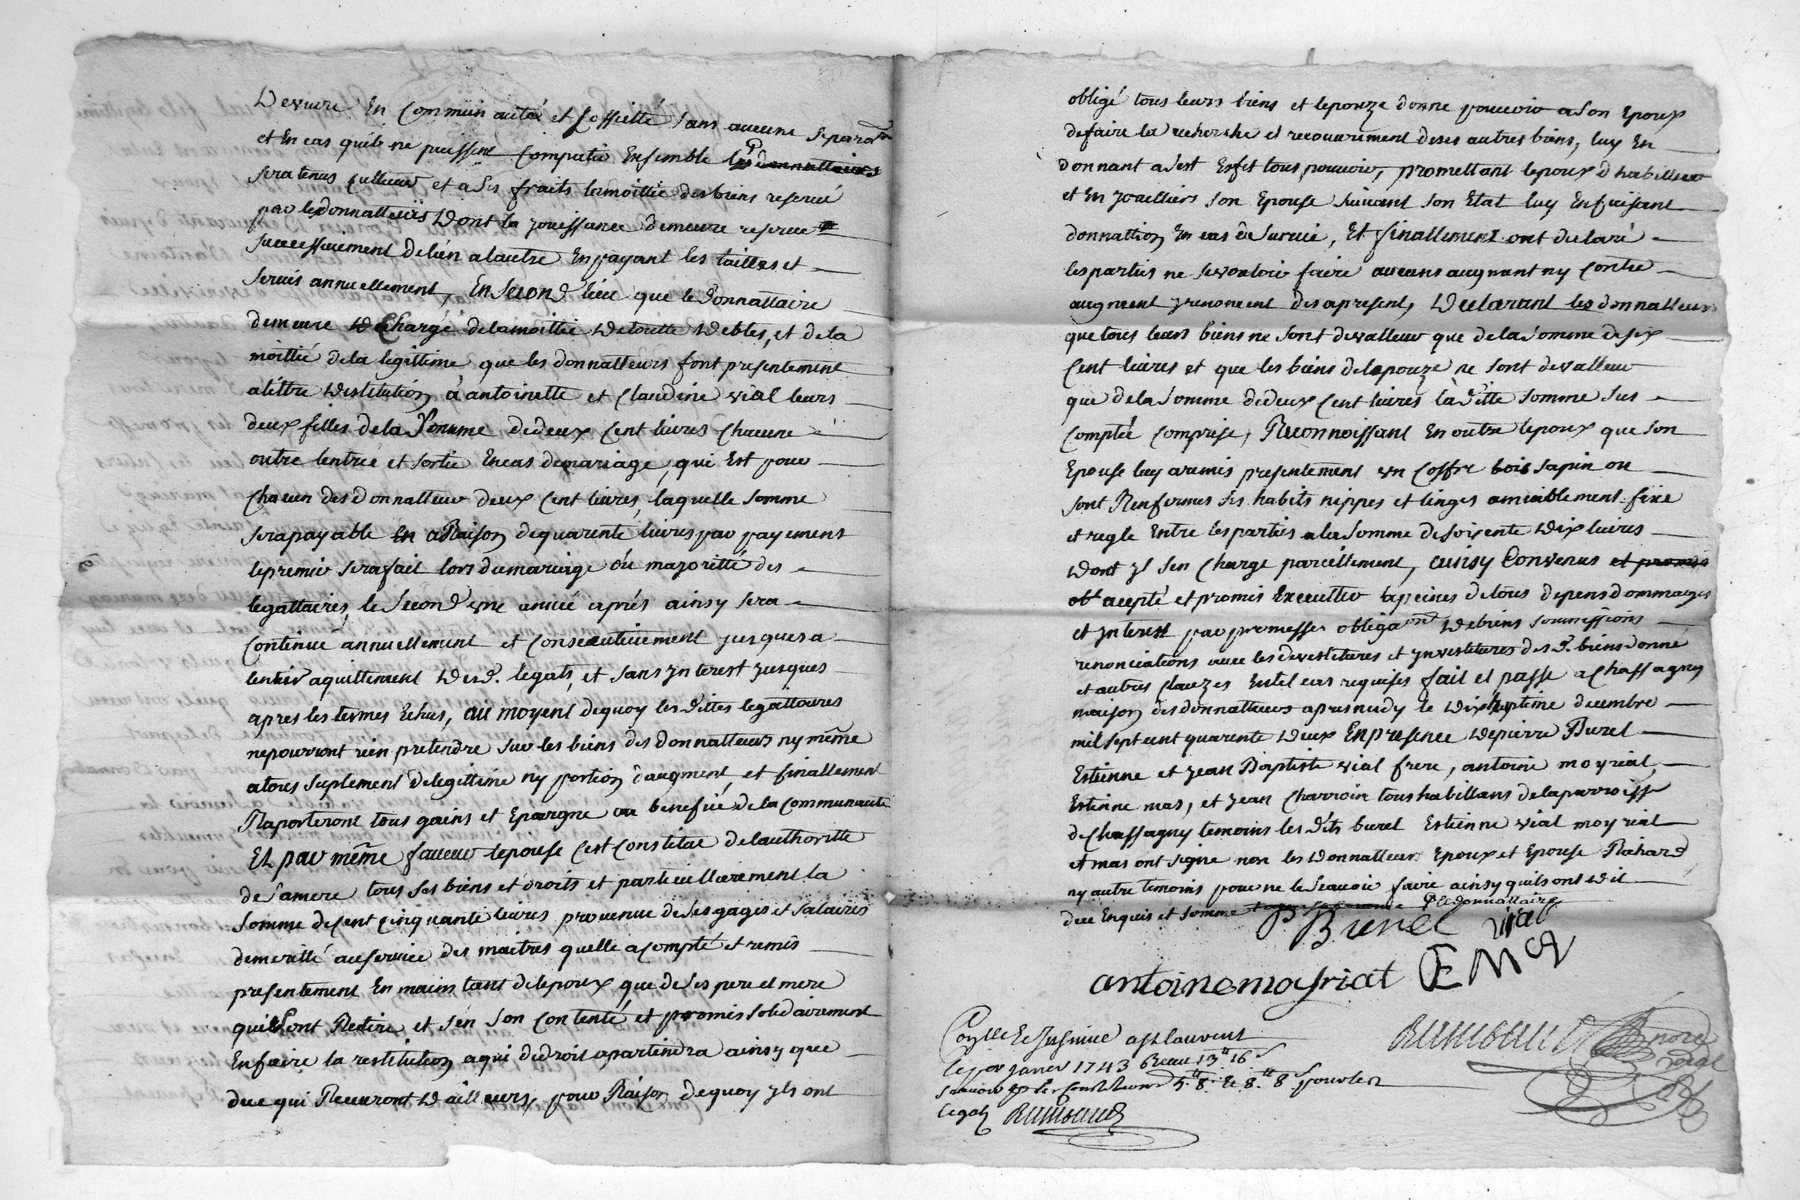 De vivre En Commun autté et Sossietté sans aucune separaon
et En cas quils ne puissent Compatir Ensemble les donnattaires
sera tenus Cullieur et a ses fraits lamoittie des biens reservé
par les donnatteurs Dont la jouissance demeure reservee
successivement de lun a lautre En payant les tailles et
servis annuellement, En Second lieu que le Donnattaire
demeure Chargé delamoittie De toutte Debtes, et de la
moittié de la legittime que les donnatteurs font presentement
a tittre Dinstitution a antoinette et Claudine vial leurs
deux filles de la Somme de deux Cent livres Chacune
outre lentrée et sortie En cas de mariage, qui Est pour
Chacun des donnatteur deux Cent livres, laquelle somme
sera payable En a Raison de quarente livres par payement
le premier sera fait lors du mariage ou majoritté des
legattaires, le Second une année aprés ainsy sera
Continué annuellement et Consecutivement jusques a
lentier aquittement Desd. legats, et sans ynterest jusques
apres les termes Echus, au moyent de quoy les dittes legattaires
ne pourront rien pretendre sur les biens des donnatteurs ny même
a tous suplement de legittime ny portion d'augment, et finallement
Raporteront tous gains et Epargne au benefice de la Communauté
Et par même faveur lepouse Cest Constitué de lauthoritté
de Sa mere tous ses biens et droits et particuillierement la
Somme de Cent Cinquante livres provenue de Ses gages et salaires
demeritté au service des maitres quelle a compté et remis
presentement En mains tant de lepoux que de Ses pere et mere
quil lont Retiré et s'en Son Contenté et promis solidairement
En faire la restitution a qui de droit apartiendra ainsy que
de ce qui Recevront Dailleurs, pour Raison de quoy yls ont
obligé tous leurs biens et lepouze donne pouvoir a Son Epoux
de faire la recherche et recouvrement de ses autres biens, luy En
donnant a Cest Effet tous pouvoir, promettant lepoux dhabiller
et En joailliers Son Epouse suivant Son Etat luy En faisant
donnattion En cas de Survie, Et finallement ont declaré
les parties ne se vouloir faire aucuns augmant ny Contre
augment y renoncent des apresent, Declarant les donnatteurs
que tous leurs biens ne sont de valleur que de la Somme de six
Cent livres et que les biens de lepouze ne sont de valleur
que de la Somme de deux Cent livres la ditte somme sus
Comptée Comprise, Reconnoissant En outre lepoux que son
Epouse luy a remis presentement un Coffre bois sapin ou
sont Renfermes Ses habits nippes et linges amiablement fixe
et regle Entre les parties a la Somme de soixente Dix livres
Dont yl Sen Charge pareillement, ainsy Convenus et promis
acepté et promis Executter a peines de tous depens dommages
et ynterest par promesse obligaon De biens soumissions
renonciations avec les devestitures et ynvestitures desd. biens donné
et autres Clauzes En tel cas requises fait et passe a Chassagny
maison des donnatteurs apres midy le Dix septieme decembre
mil sept cent quarente Deux En presence De pierre Burel
Estienne et jean Baptiste vial frere, antoine moyriat,
Estienne mas, et jean Charroin tous habittans de la parroisse
de Chassagny temoins les dits burel Estienne vial moyriat
et mas ont signe non les Donnatteurs Epoux et Epouse Richard
ny autre temoins pour ne le Scavoir faire ainsy quils ont Dit
de ce Enquis et Sommé
P Burel vial
antoine moyriat E Mas
Conlle et Insinué a St laurent
le janvier 1743 Receu 13tt 16s
legats